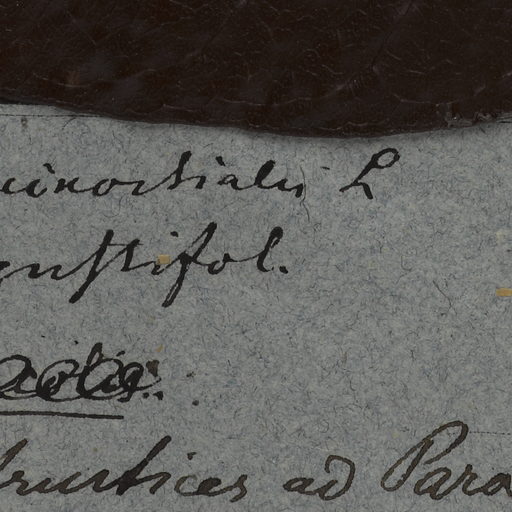 uinoctialis L
gustifol.
frutices ad Para